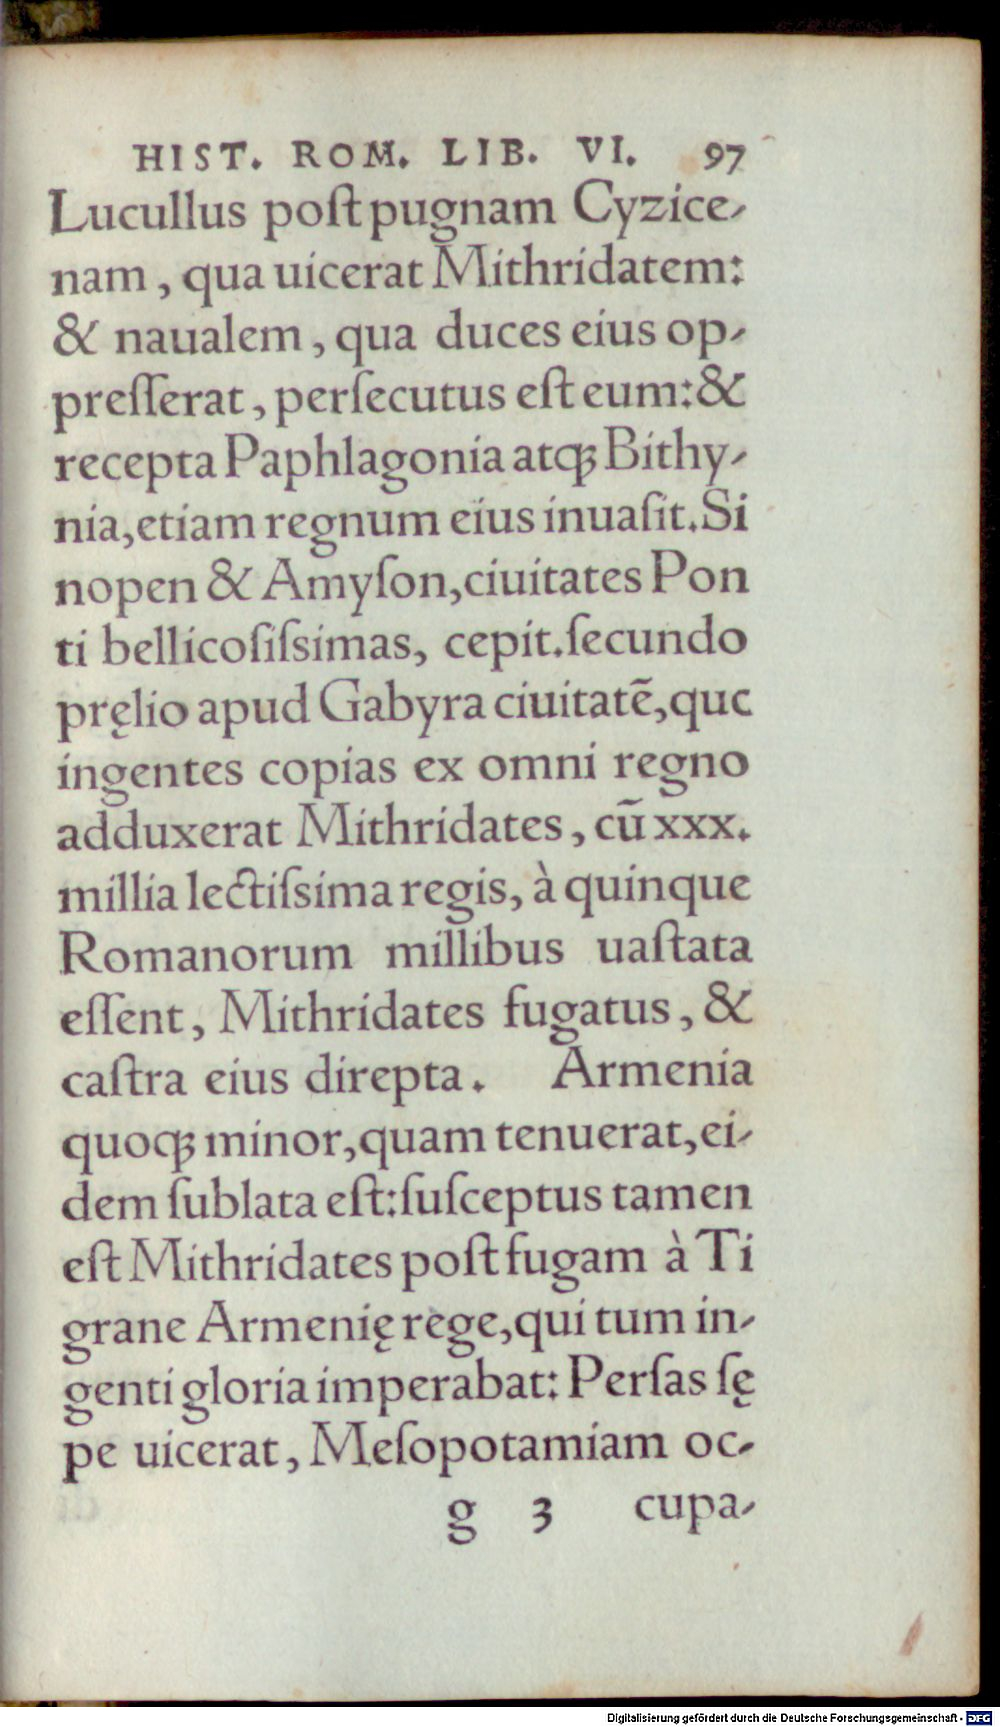 HIST. ROM. LIB. VI. 97
Lucullus poſt pugnam Cyzice-
nam, qua uicerat Mithridatem:
& naualem, qua duces eius op-
preſſerat, perſecutus eſt eum: &
recepta Paphlagonia atqꝫ Bithy-
nia, etiam regnum eius inuaſit. Si
nopen & Amyſon, ciuitates Pon
ti bellicoſiſsimas, cepit. ſecundo
pręlio apud Gabyra ciuitatē, quc
ingentes copias ex omni regno
adduxerat Mithridates, cū xxx.
millia lectiſsima regis, à quinque
Romanorum millibus uaſtata
eſſent, Mithridates fugatus, &
caſtra eius direpta. Armenia
quoqꝫ minor, quam tenuerat, ei-
dem ſublata eſt: ſuſceptus tamen
eſt Mithridates poſt fugam à Ti
grane Armenię rege, qui tum in-
genti gloria imperabat: Perſas ſę
pe uicerat, Meſopotamiam oc-
g 3 cupa-
Digitalisierung gefördert durch die Deutsche Forschungsgemeinschaft - DFG